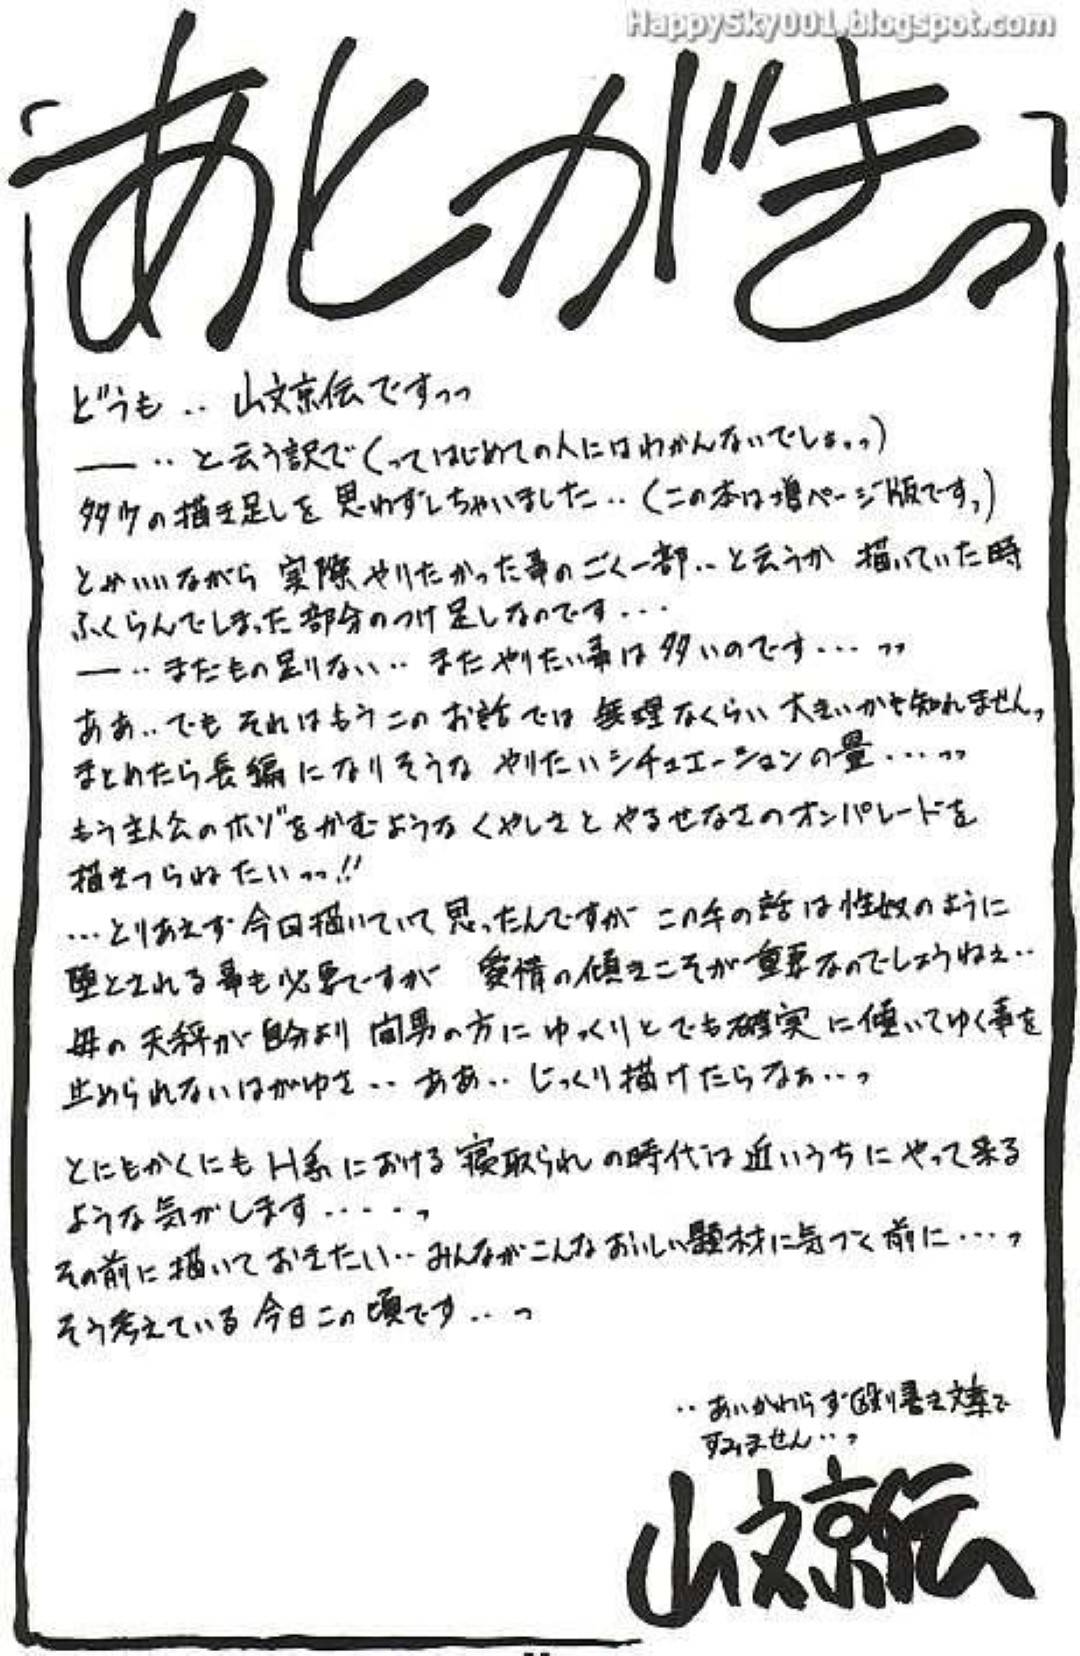 HappySky001.blogspot.com
あとがきっ
どうも‥山文京伝ですっっ
――‥と云う訳で(ってはじめての人にはわかんないでしょっっ)
タタクの描き足しを思わずしちゃいました‥(この本は増ページ版ですっ)
とかいいながら実際やりたかった事のごく一部‥と云うか描いていた時
ふくらんでしまった部分のつけ足しなのです・・・
――‥まだもの足りない‥まだやりたい事は多いのです・・・っっ
ああ‥でもそれはもうこのお話では無理なくらい大きいかも知れませんっ
まとめたら長編になりそうなやりたいシチュエーションの量・・・っっ
もう主人公のホゾをかむようなくやしさとやるせなさのオンパレードを
描きつらねたいっっ!!
・・・とりあえず今回描いていて思ったんですがこの手の話は性奴のように
堕とされる事も必要ですが 愛情の傾きこそが重要なのでしょうねぇ‥
母の天秤が自分より間男の方にゆっくりとでも確実に傾いてゆく事を
止められないはがゆさ‥ああ‥じっくり描けたらなぁ‥っ
とにもかくにもH系における寝取られの時代は近いうちにやって来る
ような気がします・・・・っ
その前に描いておきたい‥みんながこんなおいしい題材に気づく前に・・・っ
そう考えている今日この頃です‥っ
‥あいかわらず殴り書き文章で
すみません‥っ
山文京伝